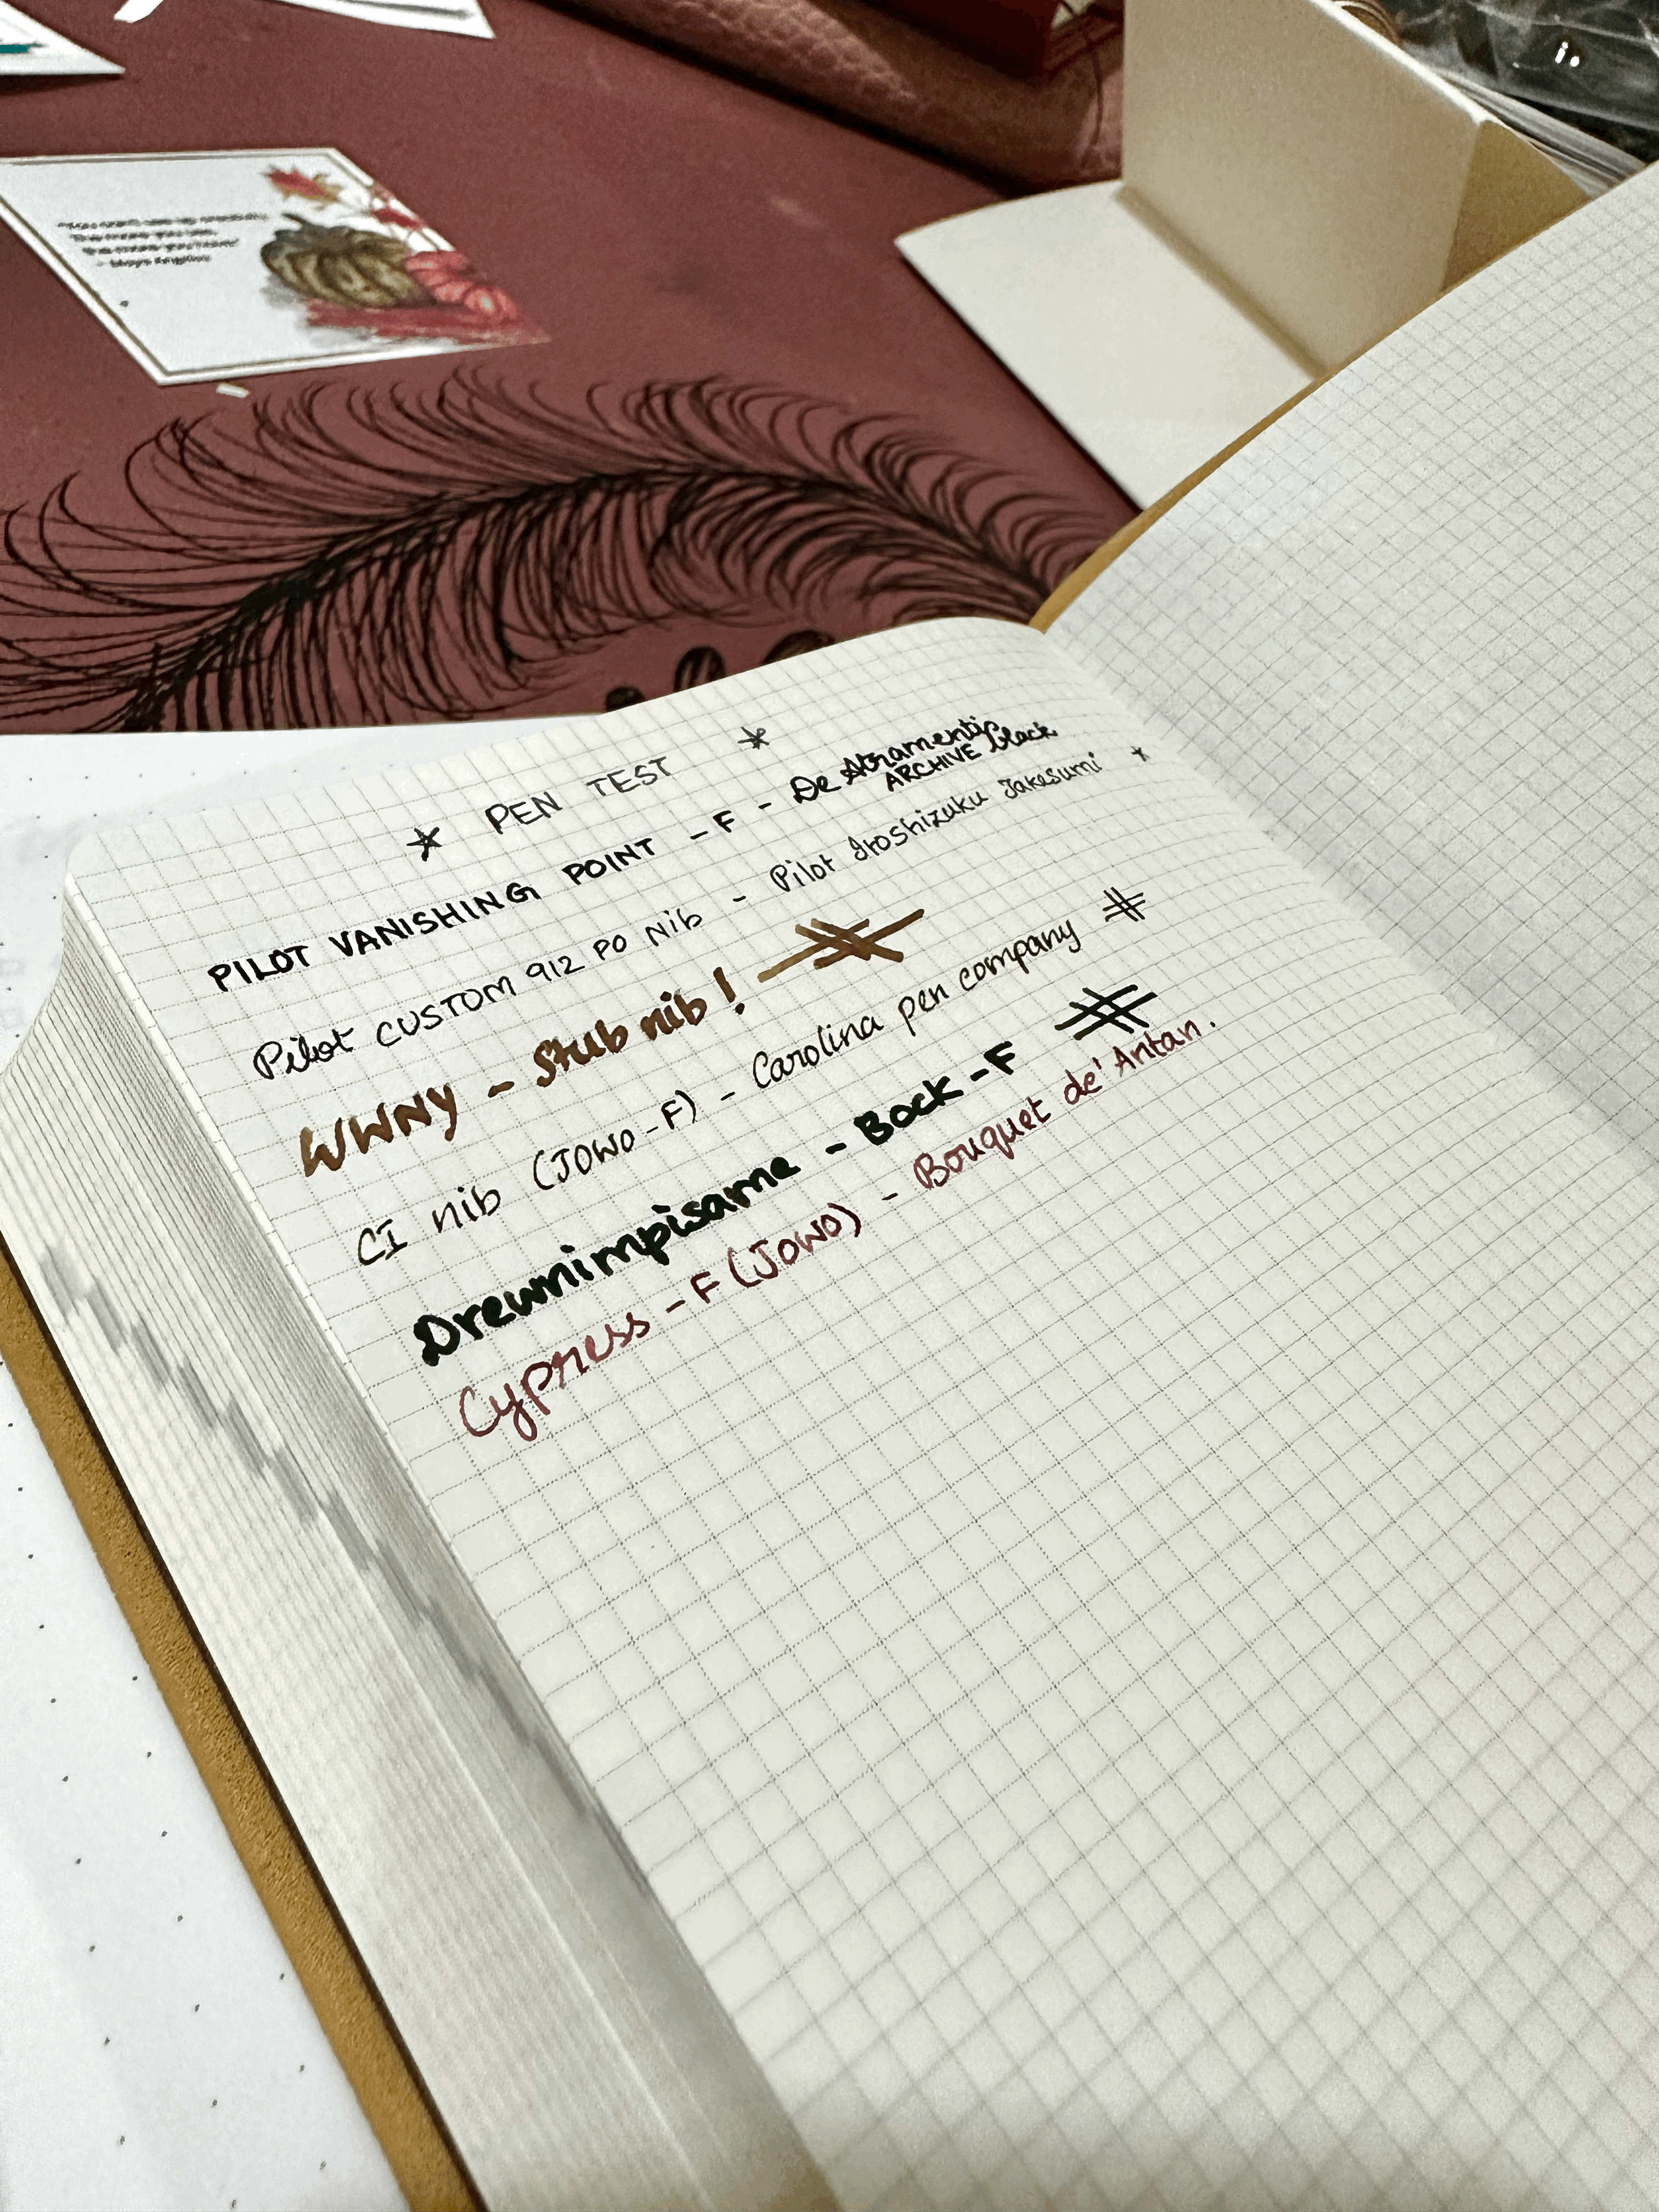 PEN TEST
PILOT VANISHING POINT - F - De Atramentis
ARCHIVE black
Pilot CUSTOM 912 PO Nib - Pilot Iroshizuku Takesumi
WWNY - Stub nib!
CI nib (JOWO-F) - Carolina pen company
Drewnimpisame - Bock - F
Cypress - F (JOWO) - Bouquet de'Antan.